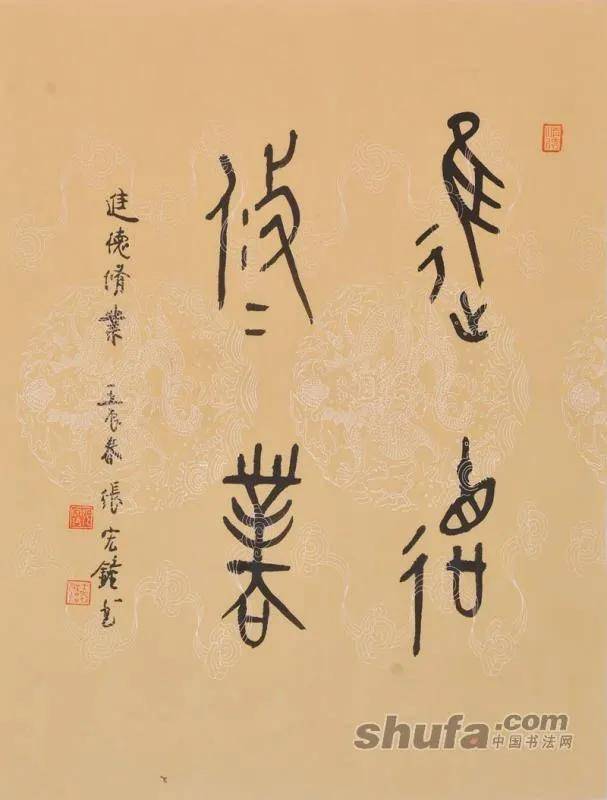 進德
修業
進德脩業 壬辰春 張宏鐘書
shufa.com
中国书法网